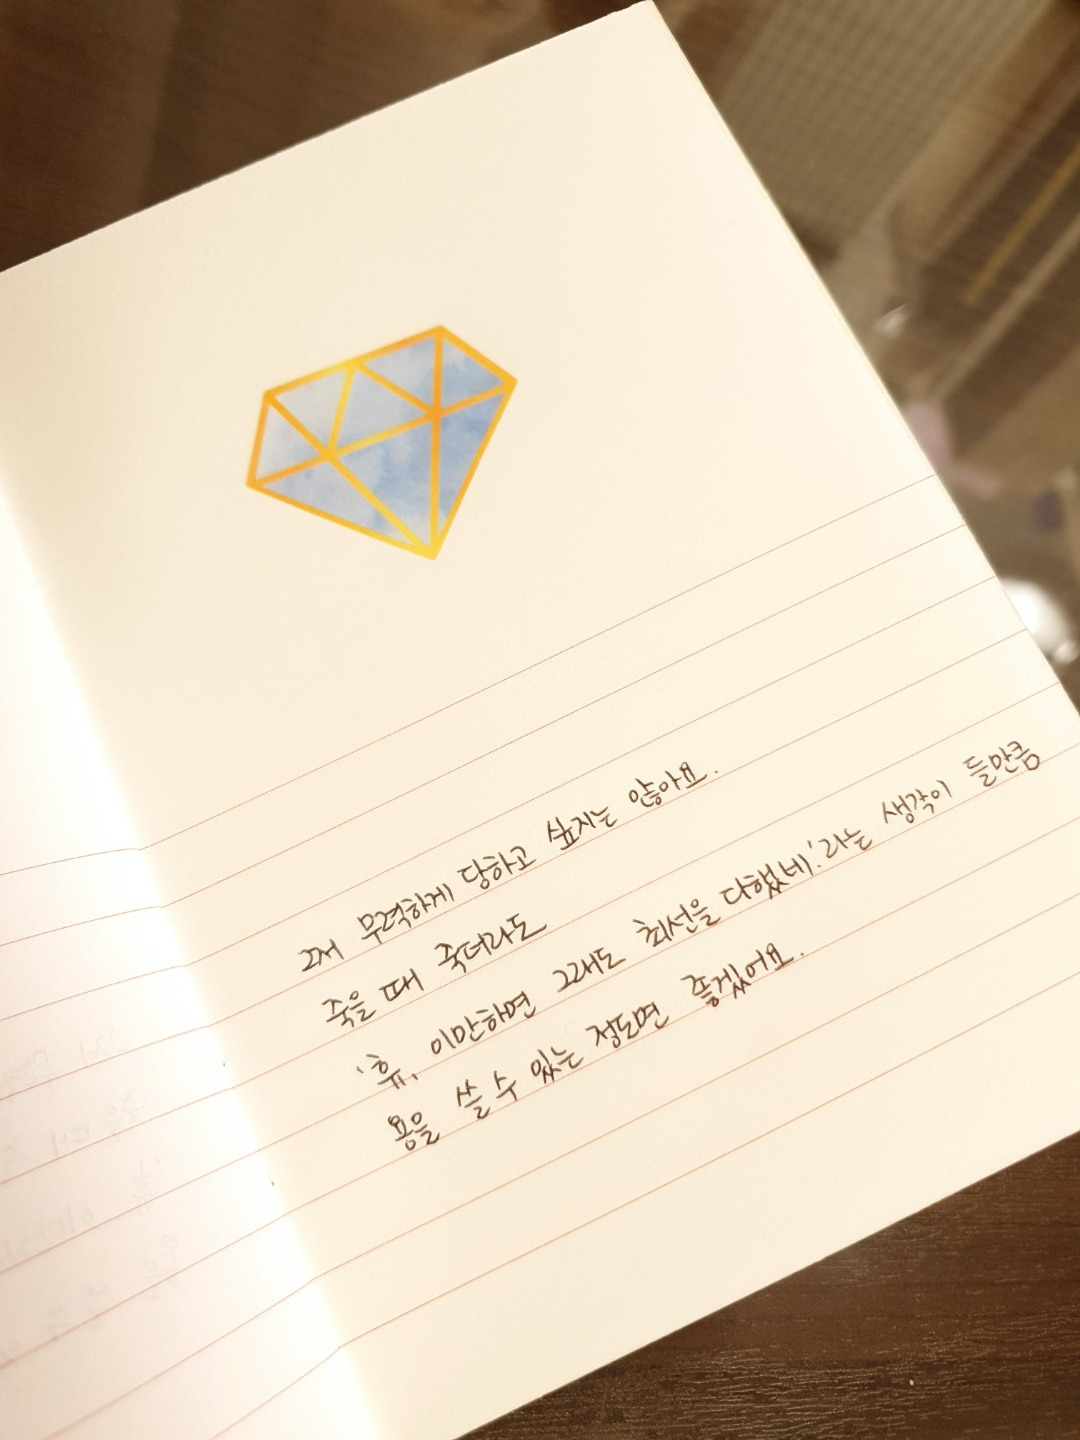 그저 무력하게 당하고 싶지는 않아요.
죽을 때 죽더라도
'휴, 이만하면 그래도 최선을 다했네.'라는 생각이 들만큼
용을 쓸 수 있는 정도면 좋겠어요.